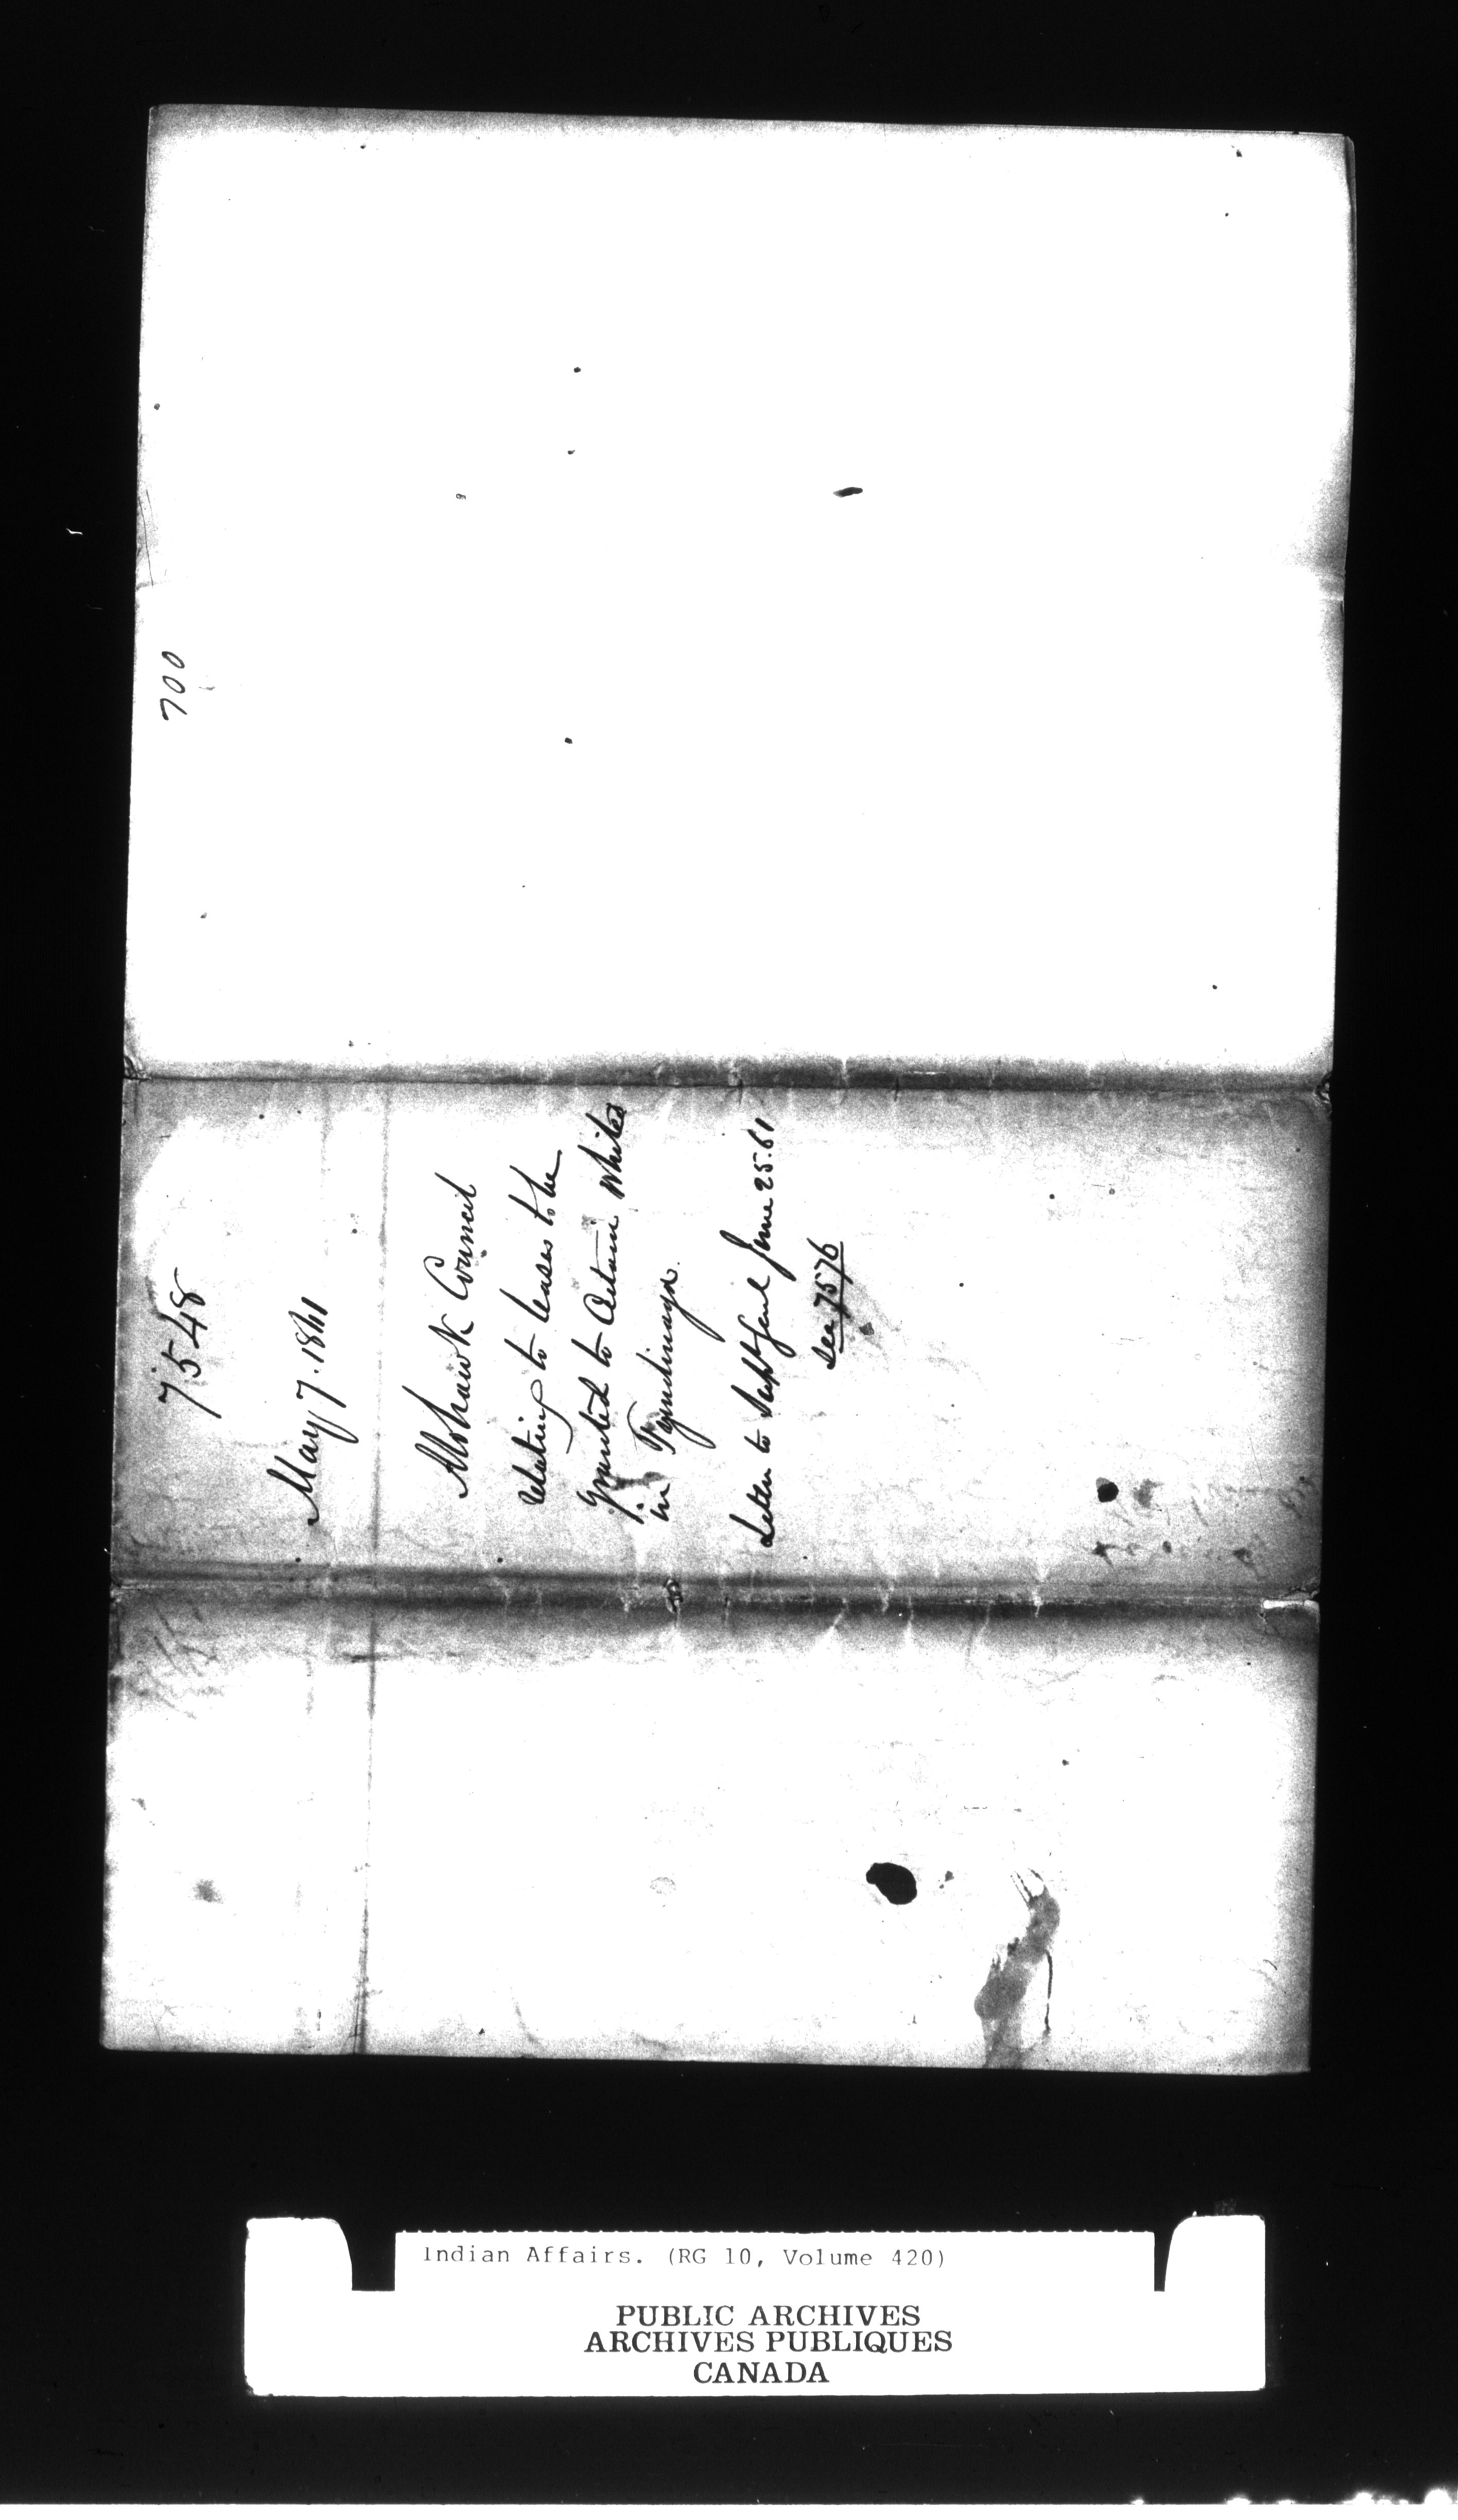 700
7548
May 7. 1861
Mohawk Council
relating to leases to be
granted to certain Whites
in Tyendinaga.
Letter to Supt Genl June 25. 61
See 7576
Indian Affairs. (RG 10, Volume 420)
PUBLIC ARCHIVES
ARCHIVES PUBLIQUES
CANADA